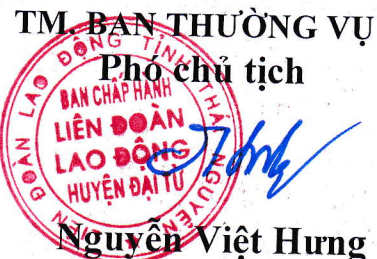 TM. BAN THƯỜNG VỤ
Phó chủ tịch
LIÊN ĐOÀN LAO ĐỘNG TỈNH THÁI NGUYÊN
BAN CHẤP HÀNH
LIÊN ĐOÀN
LAO ĐỘNG
HUYỆN ĐẠI TỪ
Nguyễn Việt Hưng